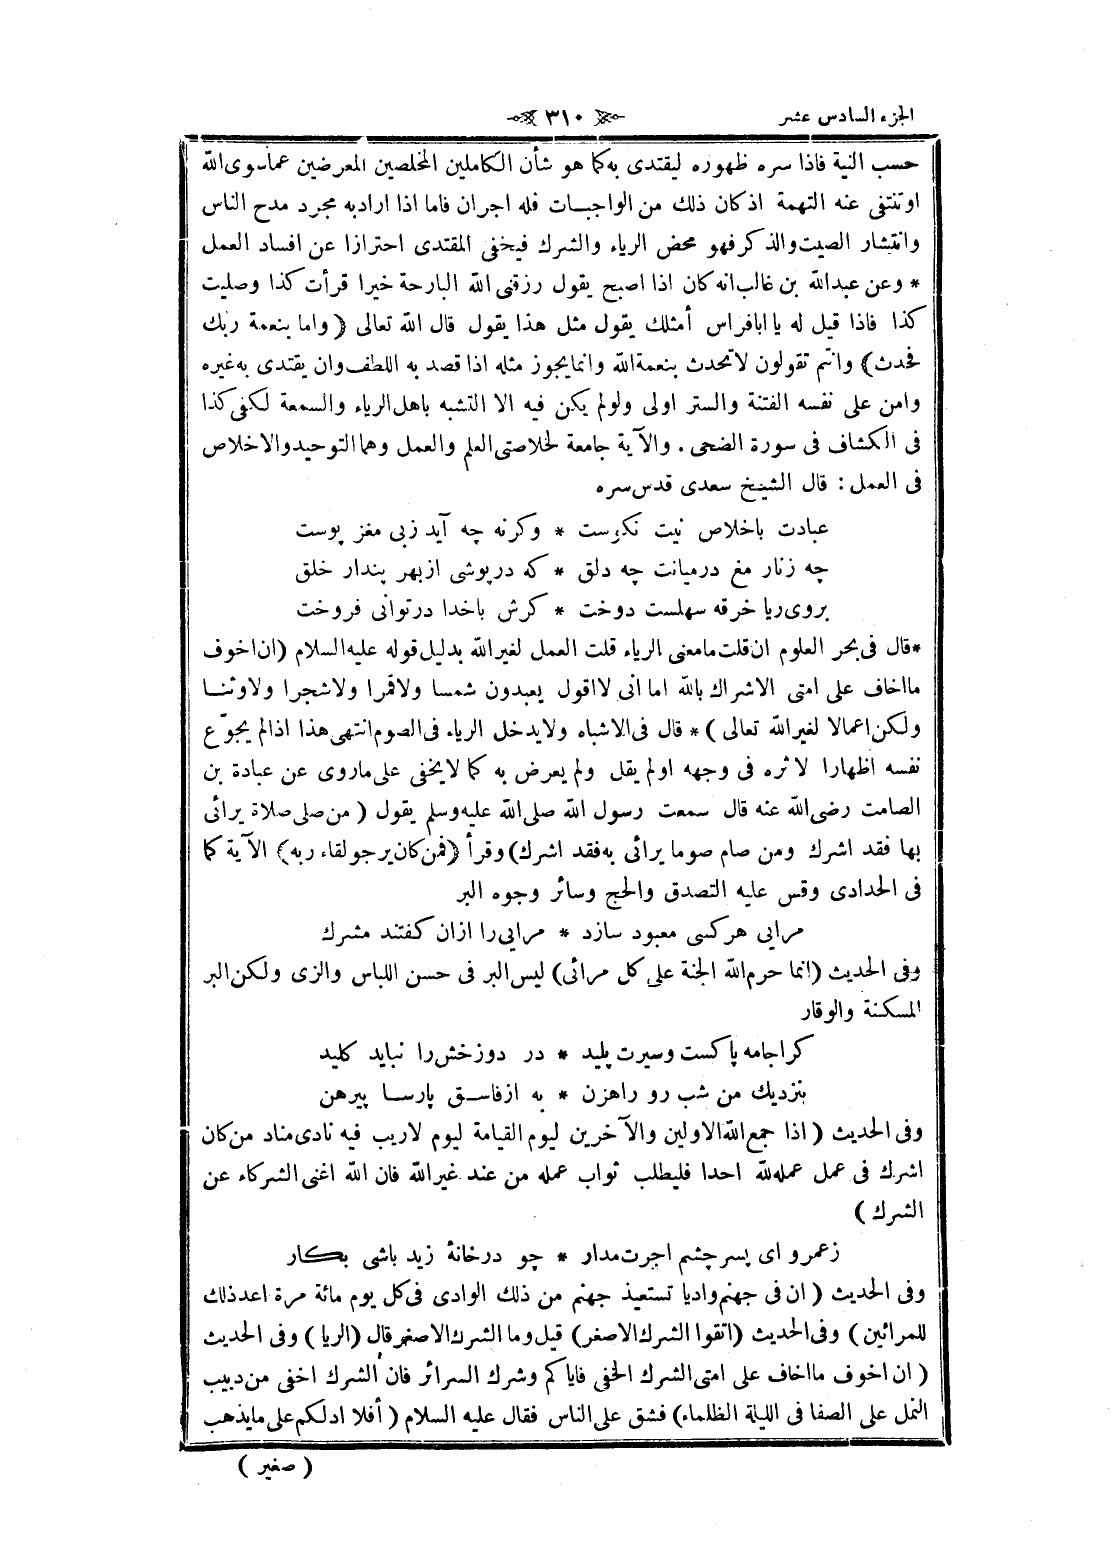 الجزء السادس عشر
٣١٠
حسب النية فاذا سره ظهوره ليقتدى به كما هو شأن الكاملين المخلصين المعرضين عماسوى الله
او تنتفى عنه التهمة اذ كان ذلك من الواجبات فله اجران فاما اذا اراد به مجرد مدح الناس
وانتشار الصيت والذكر فهو محض الرياء والشرك فيخفى المقتدى احترازا عن افساد العمل
* وعن عبدالله بن غالب انه كان اذا اصبح يقول رزقنى الله البارحة خيرا قرأت كذا وصليت
كذا فاذا قيل له يا ابافراس أمثلك يقول مثل هذا يقول قال الله تعالى ( واما بنعمة ربك
فحدث) وانتم تقولون لاتحدث بنعمة الله وانما يجوز مثله اذا قصد به اللطف وان يقتدى به غيره
وامن على نفسه الفتنة والستر اولى ولولم يكن فيه الا التشبه باهل الرياء والسمعة لكفى كذا
فى الكشاف فى سورة الضحى . والآية جامعة لخلاصتى العلم والعمل وهما التوحيد والاخلاص
فى العمل : قال الشيخ سعدى قدس سره
عبادت باخلاص نيت نكوست * وكرنه چه آيد زبى مغز پوست
چه زنار مغ درميانت چه دلق * كه در پوشى از بهر پندار خلق
بروى ريا خرقه سهلست دوخت * كرش باخدا در توانى فروخت
*قال فى بحر العلوم ان قلت مامعنى الرياء قلت العمل لغير الله بدليل قوله عليه السلام (ان اخوف
مااخاف على امتى الاشراك بالله اما انى لااقول يعبدون شمسا ولاقمرا ولاشجرا ولاوثنا
ولكن اعمالا لغير الله تعالى )* قال فى الاشباه ولايدخل الرياء فى الصوم انتهى هذا اذالم يجوّع
نفسه اظهارا لاثره فى وجهه اولم يقل ولم يعرض به كما لايخفى على ماروى عن عبادة بن
الصامت رضى الله عنه قال سمعت رسول الله صلى الله عليه وسلم يقول ( من صلى صلاة يرائى
بها فقد اشرك ومن صام صوما يرائى به فقد اشرك) وقرأ (فمن كان يرجو لقاء ربه) الآية كما
فى الحدادى وقس عليه التصدق والحج وسائر وجوه البر
مرايى هركسى معبود سازد * مرايى را ازان كفتند مشرك
وفى الحديث (انما حرم الله الجنة على كل مرائى) ليس البر فى حسن اللباس والزى ولكن البر
المسكنة والوقار
كراجامه پاكست وسيرت پليد * در دوزخش را نبايد كليد
بنزديك من شب رو راهزن * به از فاسق پارسا پيرهن
وفى الحديث ( اذا جمع الله الاولين والآخرين ليوم القيامة ليوم لاريب فيه نادى مناد من كان
اشرك فى عمل عمله لله احدا فليطلب ثواب عمله من عند غير الله فان الله اغنى الشركاء عن
الشرك )
زعمرو اى پسر چشم اجرت مدار * چو در خانۀ زيد باشى بكار
وفى الحديث ( ان فى جهنم واديا تستعيذ جهنم من ذلك الوادى فى كل يوم مائة مرة اعد ذلك
للمرائين ) وفى الحديث (اتقوا الشرك الاصغر) قيل وما الشرك الاصغر قال (الريا) وفى الحديث
( ان اخوف مااخاف على امتى الشرك الخفى فاياكم وشرك السرائر فان الشرك اخفى من دبيب
النمل على الصفا فى الليلة الظلماء) فشق على الناس فقال عليه السلام ( أفلا ادلكم على مايذهب
( صغير )